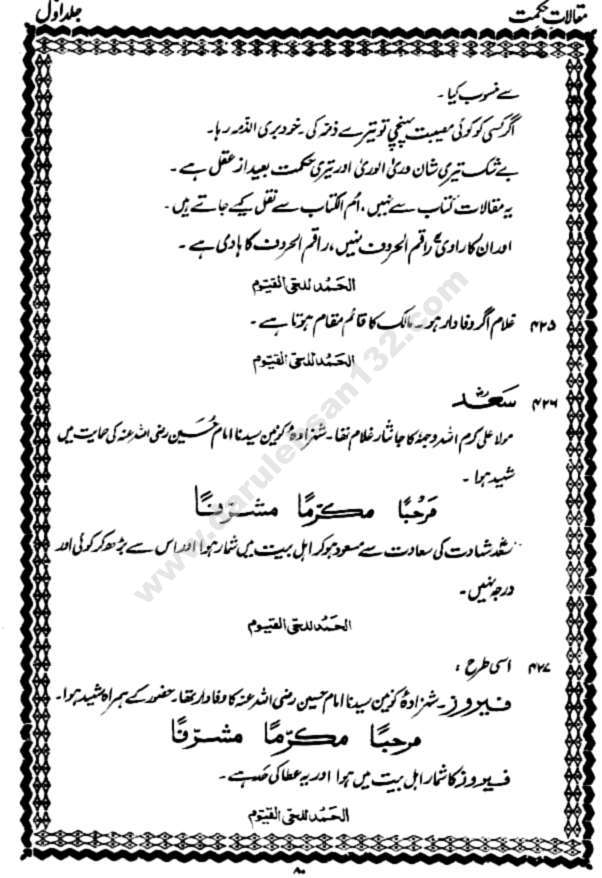 مقالاتِ حکمت
جلد اوّل
سے منسوب کیا۔
اگر کسی کو کوئی مصیبت پہنچی تو تیرے ذمّہ کی۔ خود بری الذمہ رہا۔
بے شک تیری شان وریٰ الوریٰ اور تیری حکمت بعید از عقل ہے۔
یہ مقالات کتاب سے نہیں، اُم الکتاب سے نقل کیے جاتے ہیں۔
اور ان کا راوی راقم الحروف نہیں، راقم الحروف کا ہادی ہے۔
الحمد للحی القیوم
۴۲۵ غلام اگر وفادار ہو۔ مالک کا قائم مقام ہوتا ہے۔
الحمد للحی القیوم
۴۲۶ سَعدؓ
مولا علی کرم اللہ وجہہٗ کا جانثار غلام تھا۔ شہزادۂ کونین سیدنا امام حُسین رضی اللہ عنہ کی حمایت میں
شہید ہوا۔
مَرحبًا مکرّمًا مشرّفًا
سعد شہادت کی سعادت سے مسعود ہو کر اہل بیت میں شمار ہوا اور اس سے بڑھ کر کوئی اور
درجہ نہیں۔
الحمد للحی القیوم
۴۲۷ اسی طرح :
فیروز۔ شہزادۂ کونین سیدنا امام حسین رضی اللہ عنہ کا وفادار تھا۔ حضور کے ہمراہ شہید ہوا۔
مرحبًا مکرّمًا مشرّفًا
فیروز کا شمار اہل بیت میں ہوا اور یہ عطا کی حد ہے۔
الحمد للحی القیوم
۸۰
www.darulehsan132.com